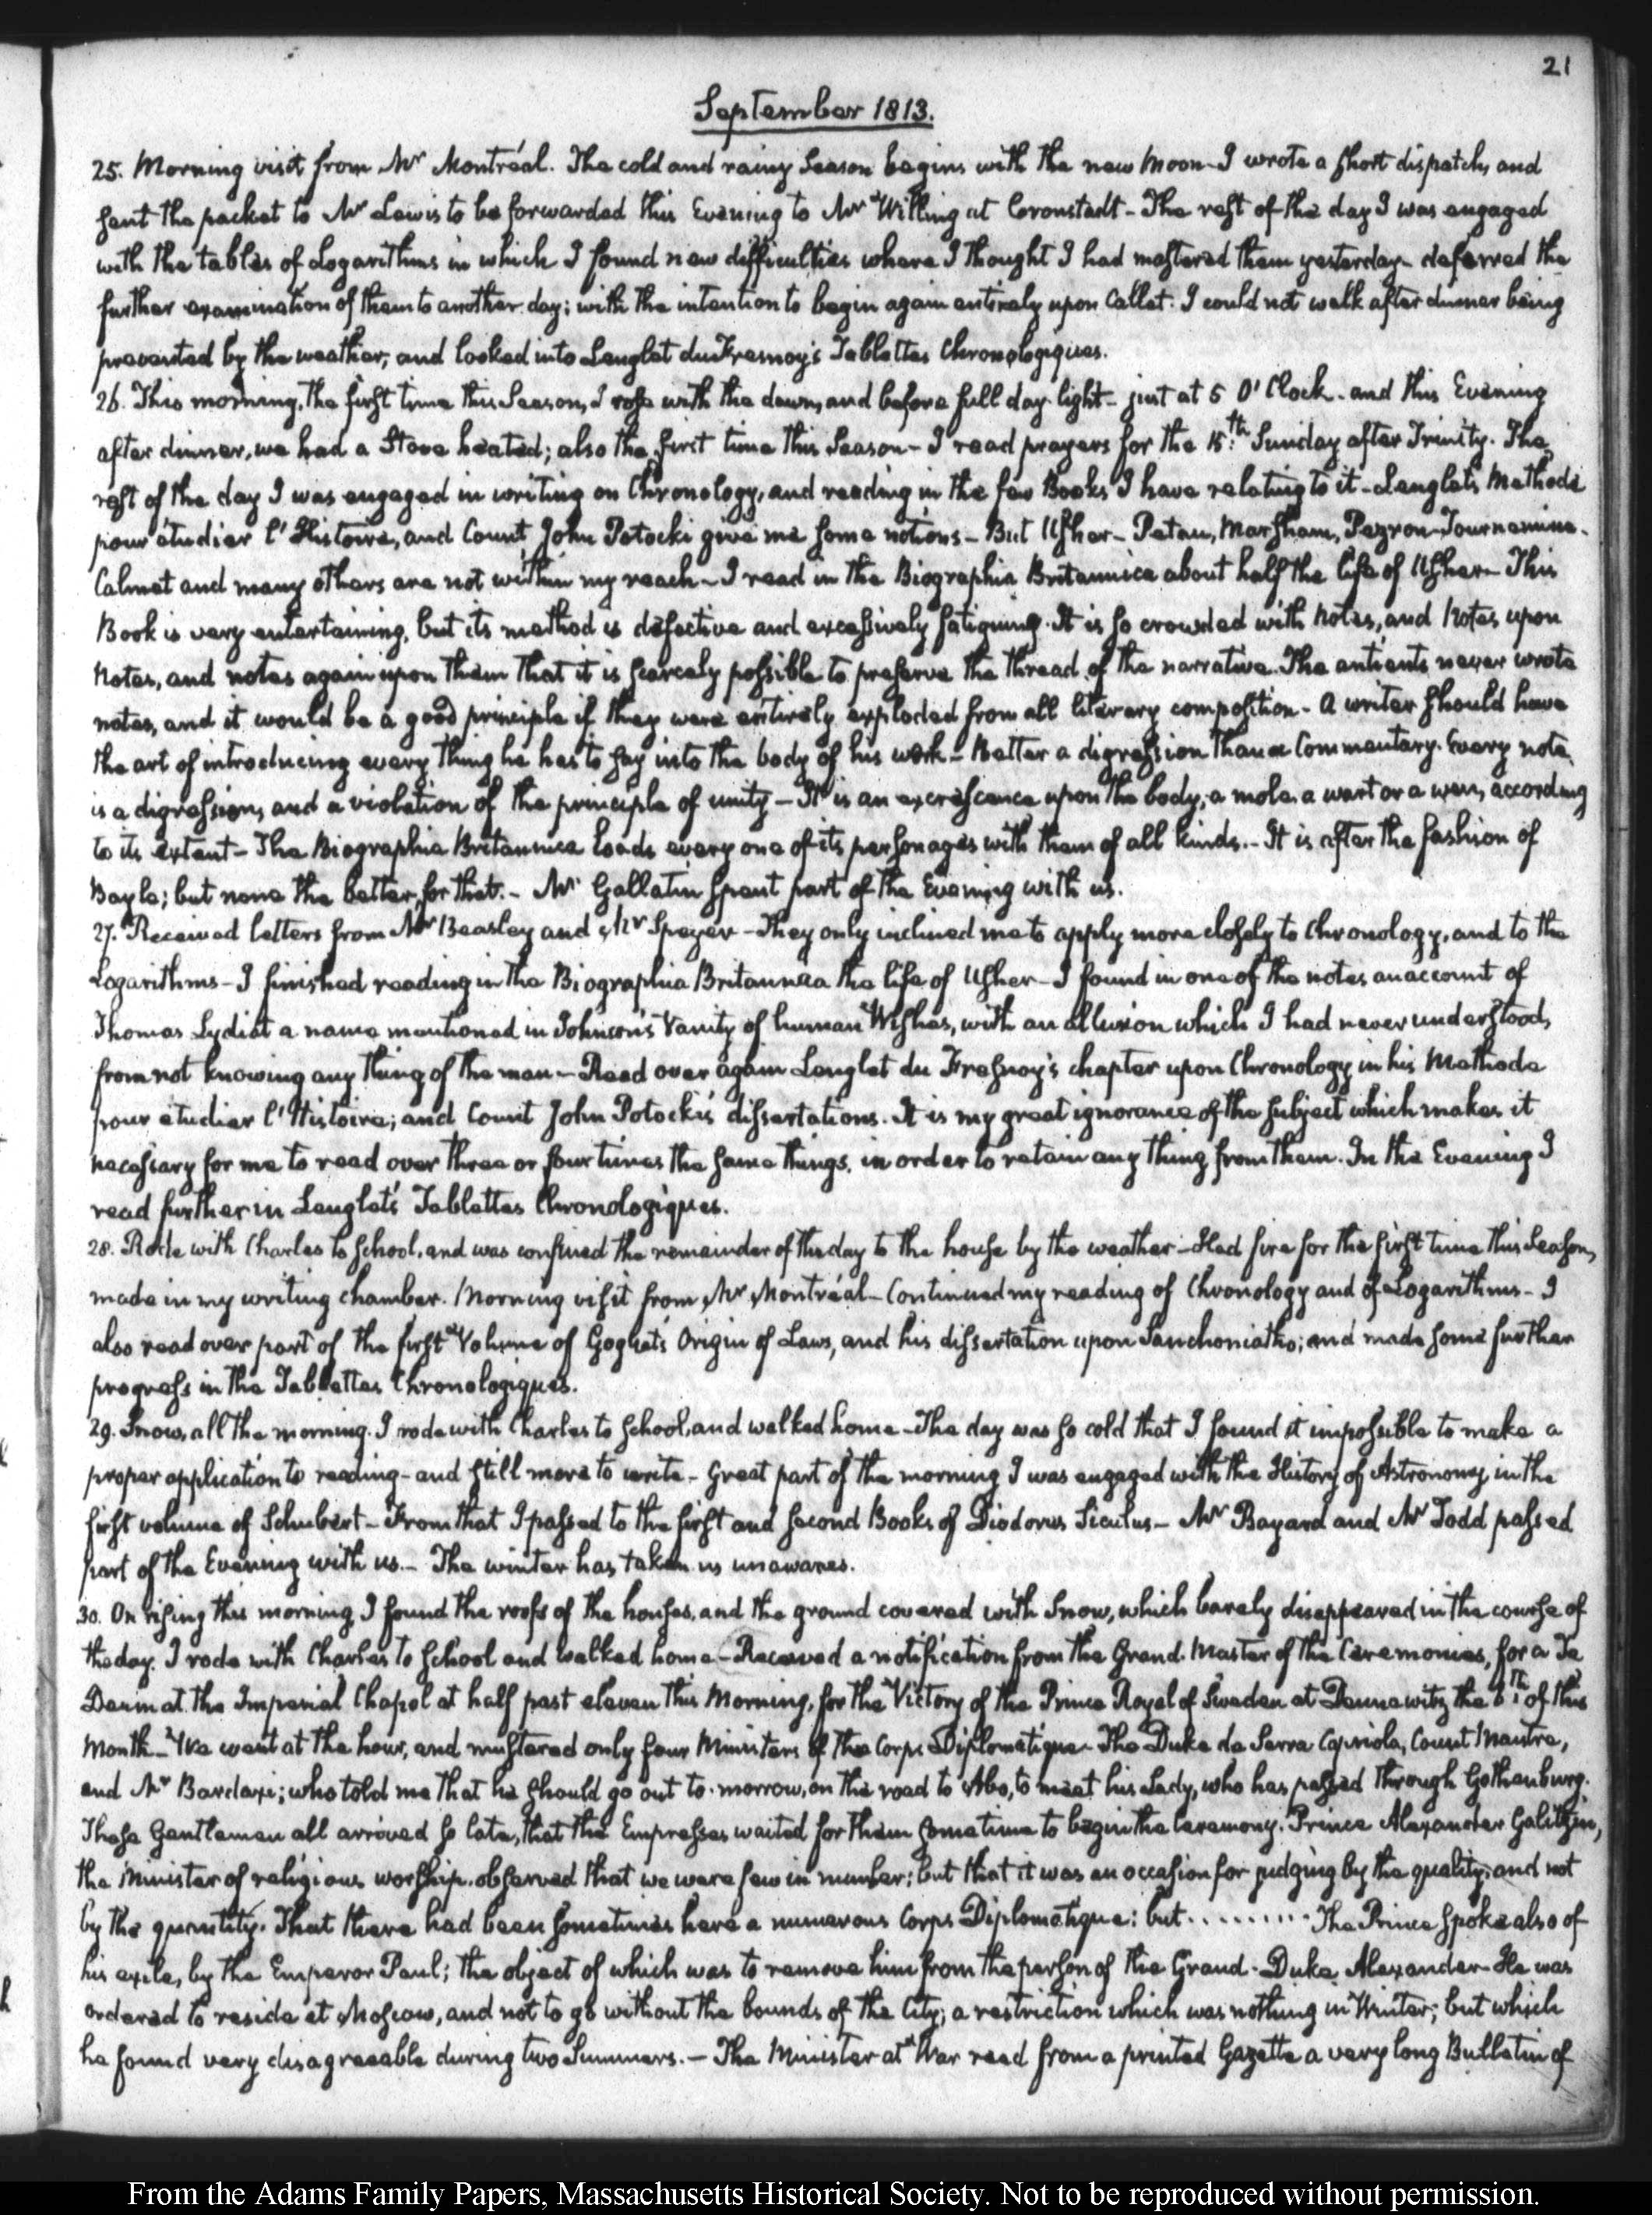 21
September 1813.
25. Morning visit from Mr Montréal. The cold and rainy Season begins with the new Moon – I wrote a short dispatch, and
sent the packet to Mr Lewis to be forwarded this Evening to Mr Willing at Cronstadt – The rest of the day I was engaged
with the tables of Logarithms in which I found new difficulties where I thought I had mastered them yesterday – deferred the
further examination of them to another day; with the intention to begin again entirely upon Callet. I could not walk after dinner being
prevented by the weather; and looked into Lenglet du Fresnoy's Tablettes Chronologiques.
26. This morning, the first time this Season, I rose with the dawn, and before full day-light – just at 5 O'Clock – and this Evening
after dinner, we had a Stove heated; also the first time this Season – I read prayers for the 15.th Sunday after Trinity. The
rest of the day I was engaged in writing on Chronology, and reading in the few Books I have relating to it – Lenglet's Methode
pour étudier l'Histoire, and Count John Potocki give me some notions – But Usher – Petau, Marsham, Pezron – Tournemine –
Calmet and many others are not within my reach – I read in the Biographia Britannica about half the life of Usher – This
Book is very entertaining, but its method is defective and excessively fatiguing. It is so crowded with Notes, and Notes upon
Notes, and notes again upon them that it is scarcely possible to preserve the thread of the narrative. The antients never wrote
notes, and it would be a good principle if they were entirely exploded from all literary composition – A writer should have
the art of introducing every thing he has to say into the body of his work – Better a digression than a Commentary. Every note
is a digression, and a violation of the principle of unity – It is an excrescence upon the body; a mole, a wart or a wen, according
to its extent – The Biographia Britannica loads every one of its personages with them of all kinds. – It is after the fashion of
Bayle; but none the better, for that. – Mr Gallatin spent part of the Evening with us.
27. Received letters from Mr Beasley and Mr Speyer – They only inclined me to apply more closely to Chronology, and to the
Logarithms – I finished reading in the Biographia Britannica the life of Usher – I found in one of the notes an account of
Thomas Lydiat a name mentioned in Johnson's Vanity of human Wishes, with an allusion which I had never understood,
from not knowing any thing of the man – Read over again Lenglet du Fresnoy's chapter upon Chronology in his Methode
pour étudier l'Histoire; and Count John Potocki's dissertations. It is my great ignorance of the subject which makes it
necessary for me to read over three or four times the same things, in order to retain any thing from them. In the Evening I
read further in Lenglet's Tablettes Chronologiques.
28. Rode with Charles to School, and was confined the remainder of the day to the house by the weather – Had fire for the first time this Season,
made in my writing chamber. Morning visit from Mr Montréal – Continued my reading of Chronology and of Logarithms – I
also read over part of the first Volume of Goguet's Origin of Laws, and his dissertation upon Sanchoniatho; and made some further
progress in the Tablettes Chronologiques.
29. Snow, all the morning. I rode with Charles to School, and walked home – The day was so cold that I found it impossible to make a
proper application to reading – and still more to write – Great part of the morning I was engaged with the History of Astronomy in the
first volume of Schubert – From that I passed to the first and second Books of Diodorus Siculus – Mr Bayard and Mr Todd passed
part of the Evening with us. – The winter has taken us unawares.
30. On rising this morning I found the roofs of the houses, and the ground covered with Snow, which barely disappeared in the course of
the day. I rode with Charles to School and walked home – Received a notification from the Grand-Master of the Ceremonies, for a Te
Deum at the Imperial Chapel at half past eleven this Morning, for the Victory of the Prince Royal of Sweden at Dennewitz the 6th of this
Month – We went at the hour, and mustered only four Ministers of the Corps Diplomatique – The Duke de Serra Capriola, Count Maistre,
and Mr Bardaxi; who told me that he should go out to-morrow, on the road to Abo, to meet his Lady, who has passed through Gothenburg.
These Gentlemen all arrived so late, that the Empresses waited for them sometime to begin the ceremony. Prince Alexander Galitzin,
the Minister of religious worship, observed that we were few in number; but that it was an occasion for judging by the quality; and not
by the quantity. That there had been sometimes here a numerous Corps Diplomatique: but ......... The Prince spoke also of
his exile, by the Emperor Paul; the object of which was to remove him from the person of the Grand-Duke Alexander – He was
ordered to reside at Moscow, and not to go without the bounds of the City; a restriction which was nothing in Winter; but which
he found very disagreeable during two Summers. – The Minister at War read from a printed Gazette a very long Bulletin of
From the Adams Family Papers, Massachusetts Historical Society. Not to be reproduced without permission.